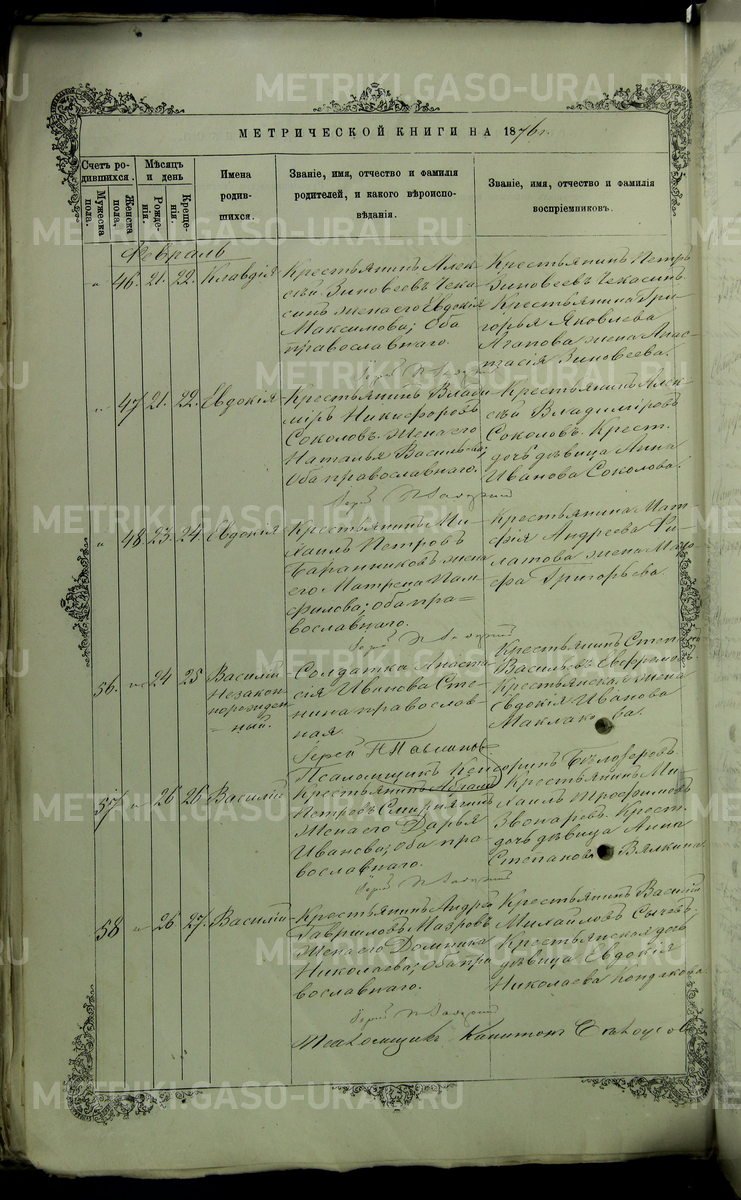 METRIKI.GASO-URAL.RU
МЕТРИЧЕСКОЙ КНИГИ НА 1876 г.
Счетъ родившихся.
Мужеска пола.
Женска пола.
Мѣсяцъ и день
Рожденія.
Крещенія.
Имена родившихся.
Званіе, имя, отчество и фамилія родителей, и какого вѣроисповѣданія.
Званіе, имя, отчество и фамилія воспріемниковъ.
Февраль
" 46. 21. 22. Клавдія
Крестьянинъ Алек-
сѣй Зиновеевъ Чека-
синъ жена его Евдокія
Максимова; оба
православнаго.
Крестьянинъ Петръ
Зиновеевъ Чекасинъ
Крестьянина Гри-
горья Яковлева
Агапова жена Анас-
тасія Зиновеева.
" 47. 21. 22. Евдокія
Крестьянинъ Влади
міръ Никифоровъ
Соколовъ. жена его
Наталья Васильева;
Оба православнаго.
Крестьянинъ Алек-
сѣй Владиміровъ
Соколовъ. Крест.
дочь дѣвица Анна
Иванова Соколова.
" 48. 23. 24. Евдокія
Крестьянинъ Ми-
хаилъ Петровъ
Баранниковъ жена
его Матрена Пам-
филова; оба пра=
вославнаго.
Крестьянина Мат-
фія Андреева Фи-
латова жена
Григорьева.
56. " 24 25 Василій
Незакон
норожден
=ный.
Солдатка Анаста
сія Иванова Сте-
нина православ-
ная.
Іерей
Крестьянинъ
Васильевъ
жена
Евдокія Иванова
Маклакова.
Псаломщикъ Бѣлоусовъ
57 " 26 26 Василій
Крестьянинъ
Петровъ
Жена его Дарья
Иванова; оба пра-
вославнаго.
Крестьянинъ Ми-
хаилъ Трофимовъ
Звонаревъ. Крест.
дочь дѣвица Анна
Степанова Вялкина.
58 " 26 27. Василій
Крестьянинъ Андрей
Гавриловъ Мазровъ
Жена его Домника
Николаева; оба пра
вославнаго.
Крестьянинъ Василій
Михайловъ Сычевъ,
Крестьянская дочь
дѣвица Евдокія
Николаева Кондакова.
Псаломщикъ Капитонъ Бѣлоусовъ